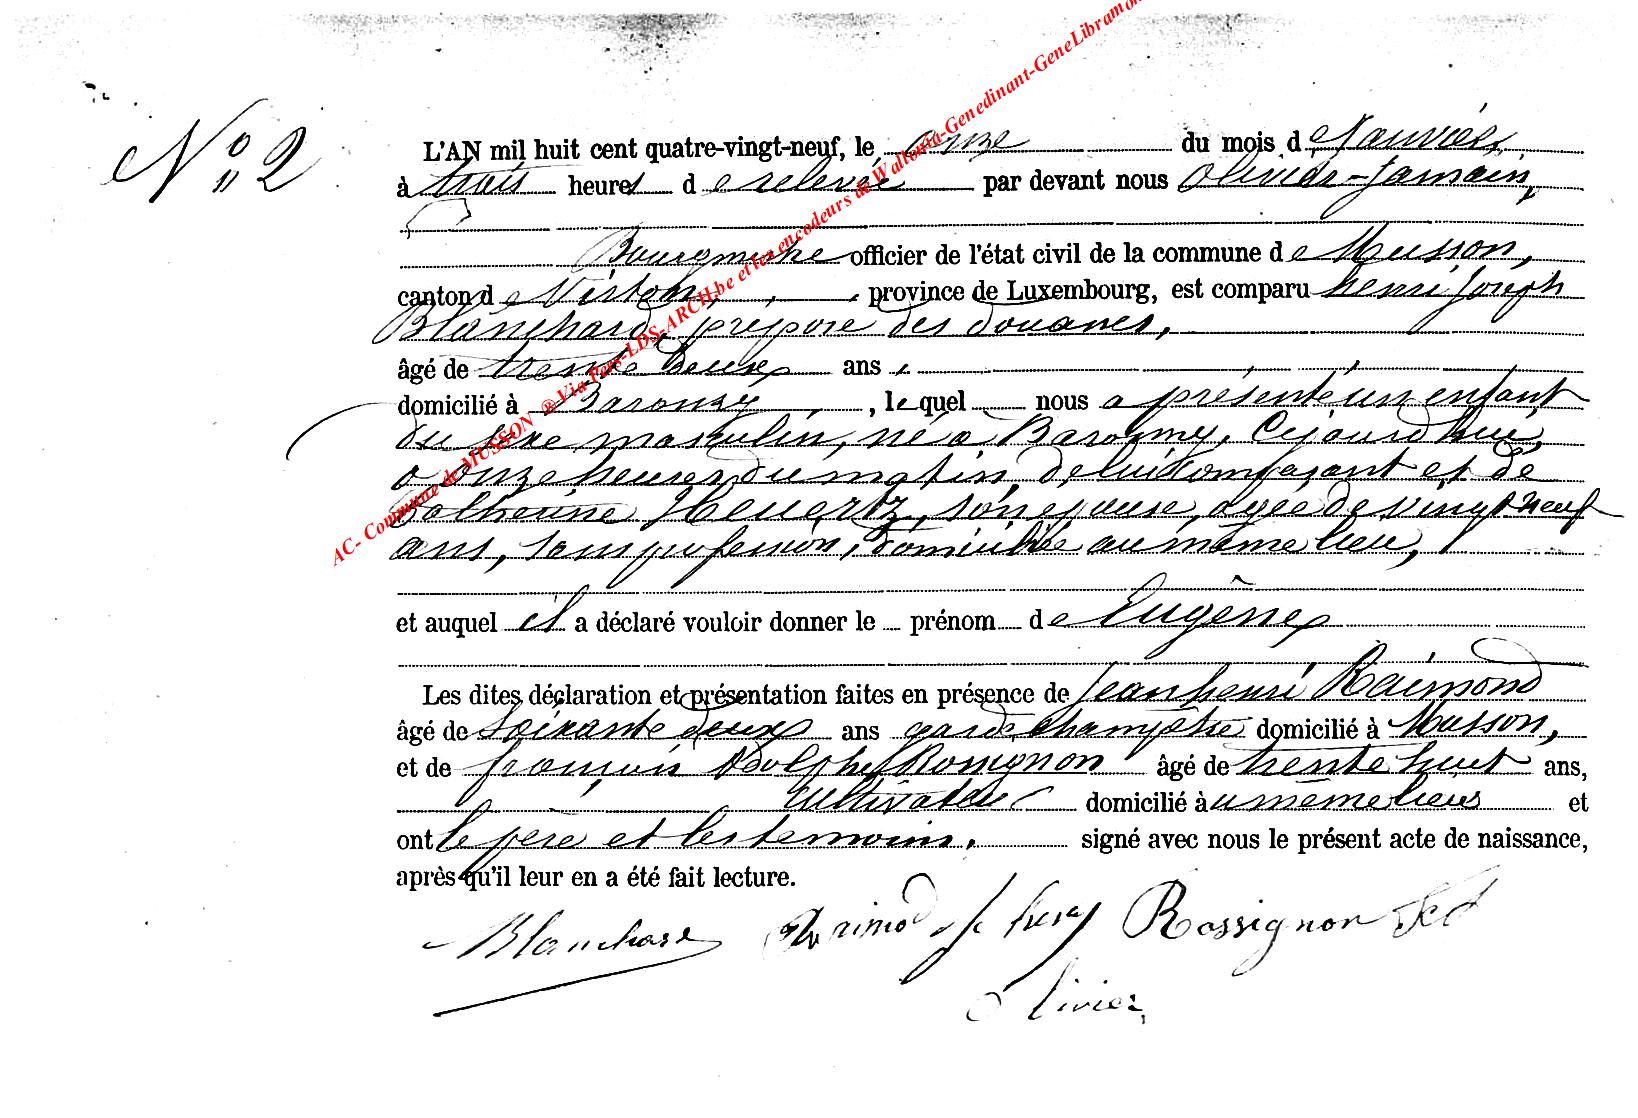 N° 2
L'AN mil huit cent quatre-vingt-neuf, le onze du mois de Janvier,
à trois heures de relevée par devant nous Olivier-Jamain,
Bourgmestre officier de l'état civil de la commune de Musson,
canton de Virton, province de Luxembourg, est comparu henri Joseph
Blanchard, préposé des douanes,
âgé de trente deux ans,
domicilié à Baranzy, lequel nous a présenté un enfant
du sexe masculin, né à Baranzy, Cejourd'hui,
à onze heures du matin, de lui comparant et de
Catherine Heuertz, son épouse, agée de vingt-neuf
ans, sans profession, domiciliée au même lieu,
et auquel il a déclaré vouloir donner le prénom de Eugène
Les dites déclaration et présentation faites en présence de Jean henri Raimond
âgé de soixante deux ans garde champêtre domicilié à Musson,
et de françois Adolphe Rossignon âgé de trente huit ans,
cultivateur domicilié au même lieu et
ont le père et les temoins, signé avec nous le présent acte de naissance,
après qu'il leur en a été fait lecture.
Blanchard Raimond Rossignon
Olivier
AC- Commune de MUSSON ® Via Pers-LDS-ARCH.be et les encodeurs de Wallonia-Genedinant-GeneLibramon